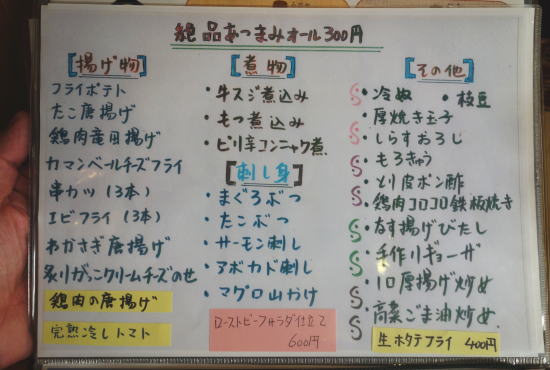 絶品おつまみオール300円
[揚げ物]
フライポテト
たこ唐揚げ
鶏肉竜田揚げ
カマンベールチーズフライ
串カツ(3本)
エビフライ(3本)
わかさぎ唐揚げ
炙りがっこクリームチーズのせ
鶏肉の唐揚げ
完熟冷しトマト
[煮物]
・牛スジ煮込み
・もつ煮込み
・ピリ辛コンニャク煮
[刺し身]
・まぐろぶつ
・たこぶつ
・サーモン刺し
・アボカド刺し
・マグロ山かけ
ローストビーフサラダ仕立て
600円
[その他]
・冷奴 ・枝豆
・厚焼き玉子
・しらすおろし
・もろきゅう
・とり皮ポン酢
・鶏肉コロコロ鉄板焼き
・なす揚げびたし
・手作りギョーザ
・厚揚げ炒め
・高菜ごま油炒め
生ホタテフライ 400円